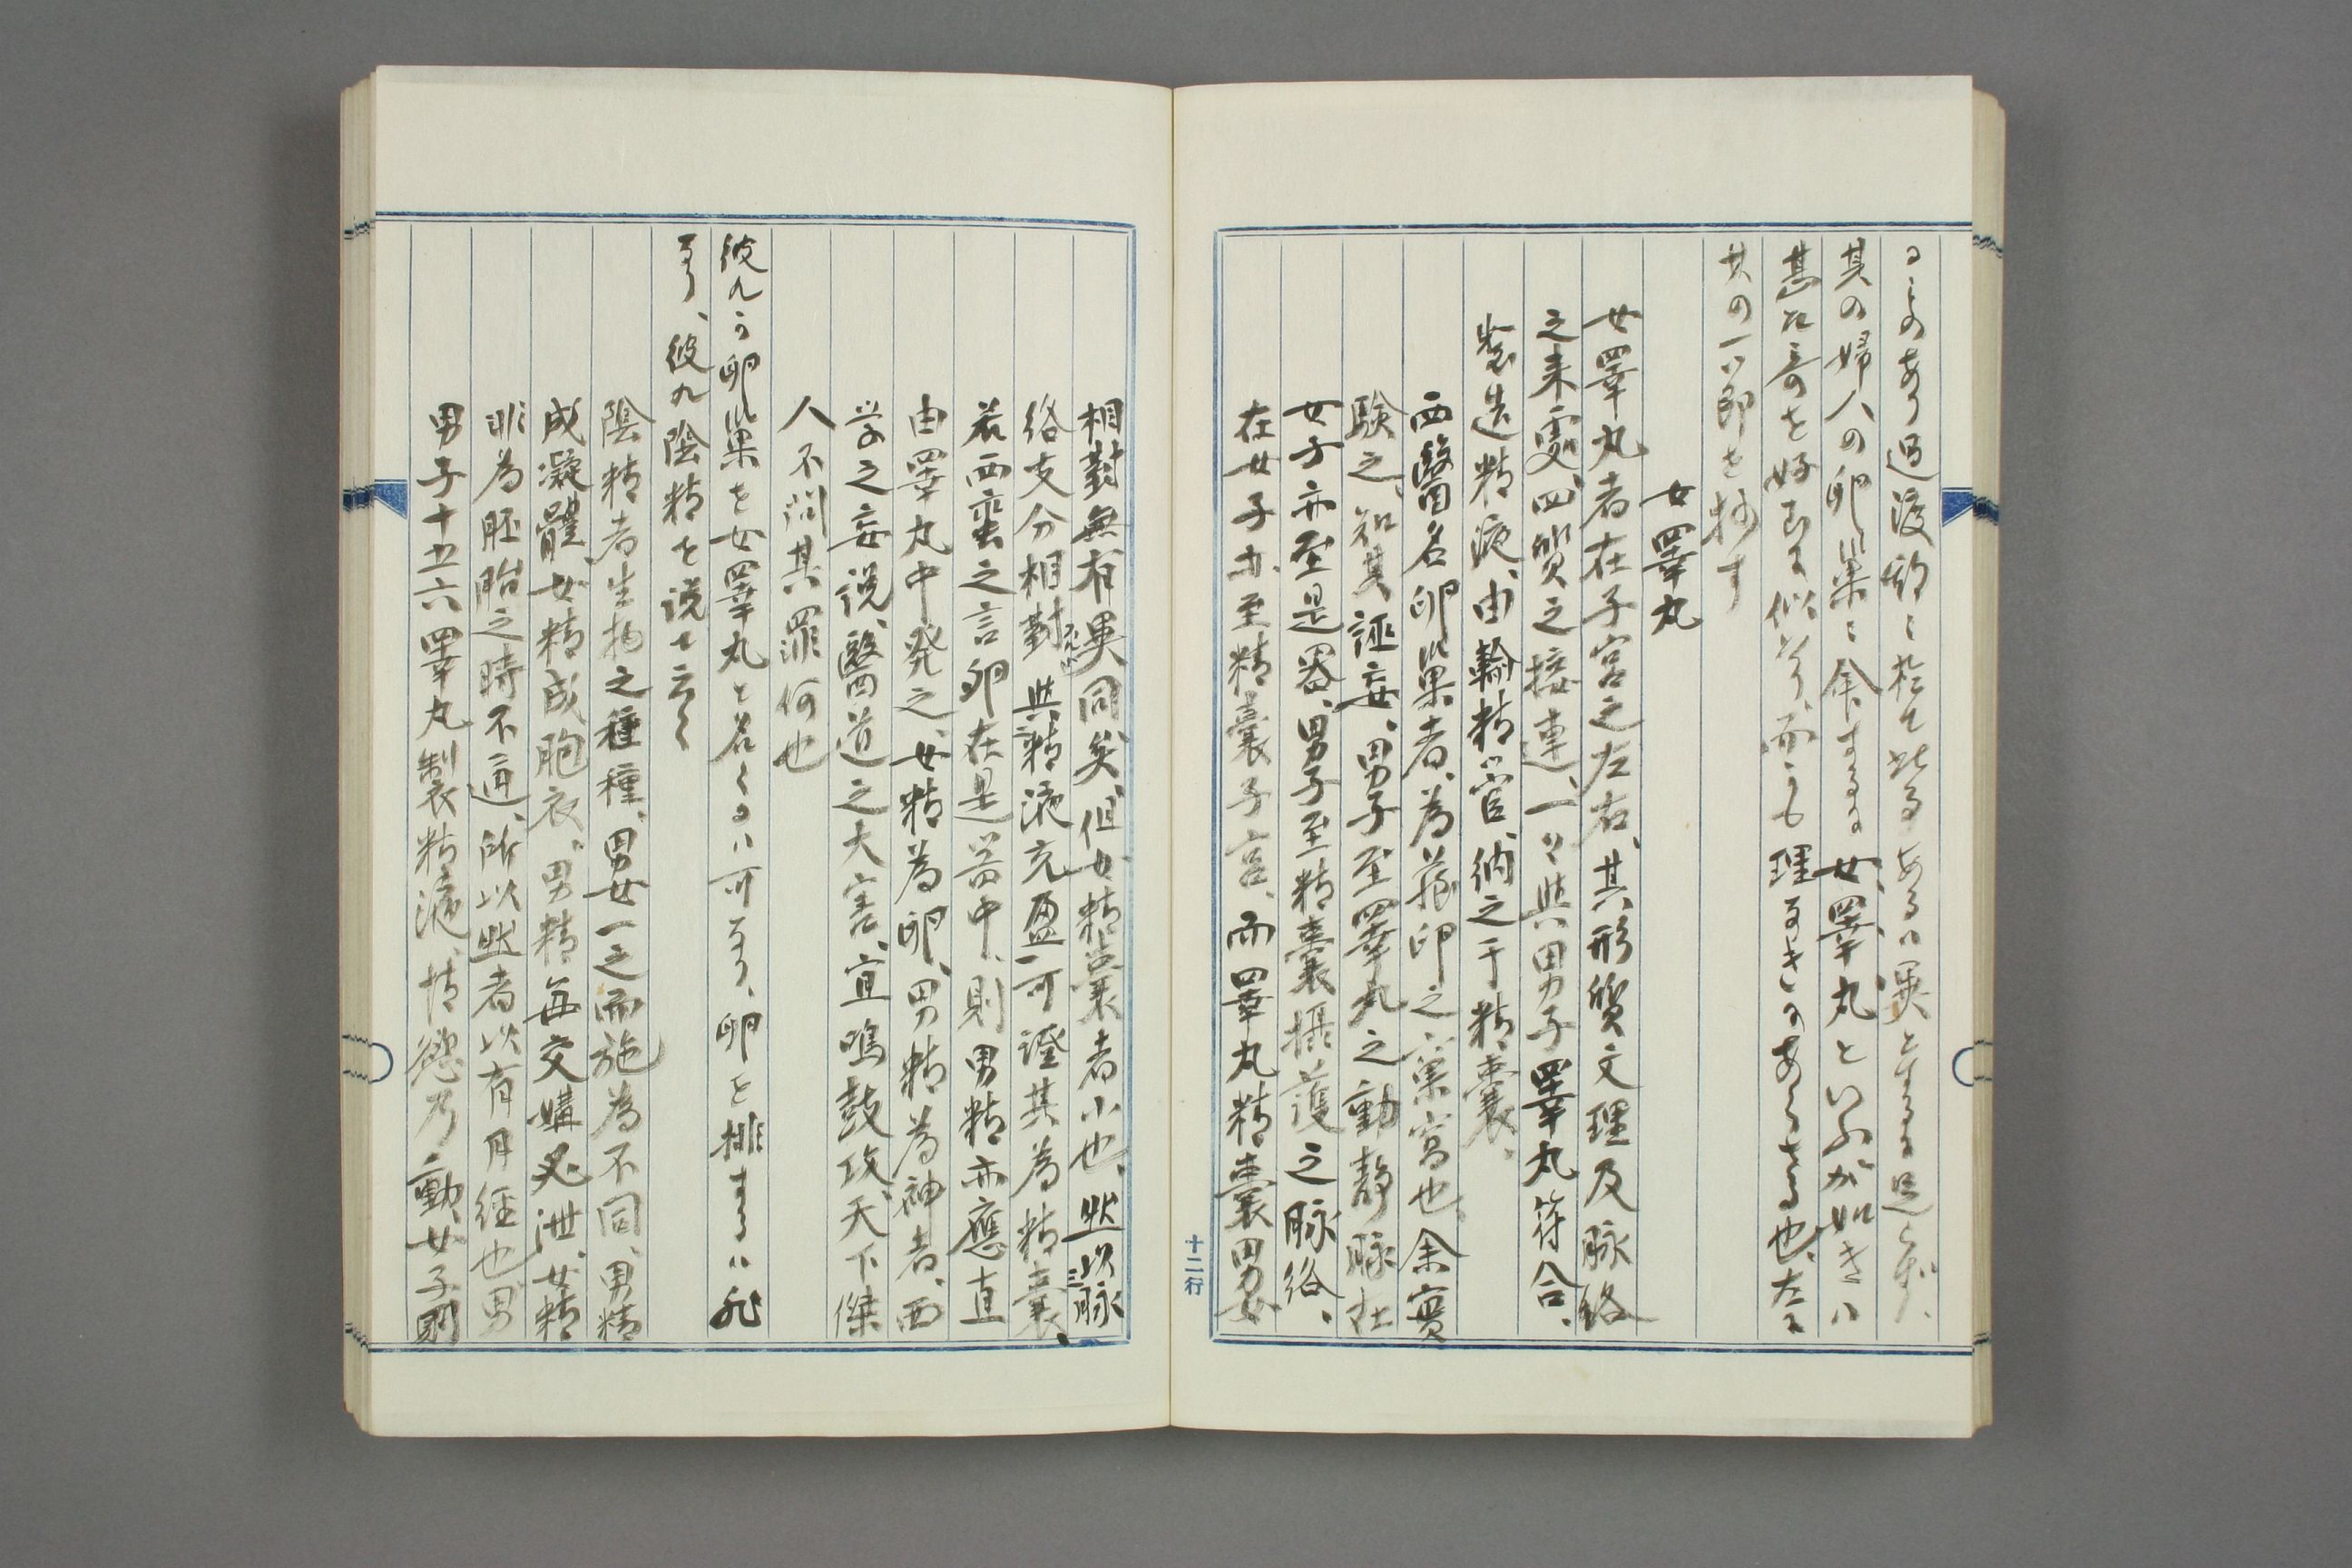 ことのあり過渡期に於て此事あるは異とするに足らず、
其の婦人の卵巣に命ずるに女睾丸といふが如きは
甚だ奇を好むに似たり、而かも理なきのあらざる也、左に
其の一節を抄す
女睾丸
女睾丸者在子宮之左右、其形質文理及脉絡
之来處、四質之接連、一々與男子睾丸符合、
製造精液、由輪精管、納之于精囊、
西醫名卵巣者、為菰卵之窠宮也、余實
験之、知其誣妄、男子至睾丸之動静脉在
女子亦至是器、男子至精囊摂護之脉絡、
在女子亦至精囊子宮、而睾丸精囊男女
十二行
相對無有異同矣、但女精囊者小也、然以脉
絡支分相對與精液充盈可證其為精囊、
若西蛮之言卵在是器中、則男精亦應直
由睾丸中発之、女精為卵、男精為神者、西
学之妄説、醫道之大害、宜鳴鼓攻、天下傑
人不問其罪何也
彼れが卵巣を女睾丸と名くるは可なり、卵を排するは非
なり、彼れ陰精を説て云く
陰精者生物之種種、男女一之而施為不同、男精
成凝體、女精成胞衣、男精毎交媾必泄、女精
非為胚胎之時不通、所以然者以有月経也男
男子十五六睾丸製精液、情慾乃動、女子則